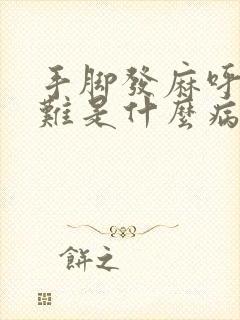 手脚發麻呼
難是什麼病
餅之